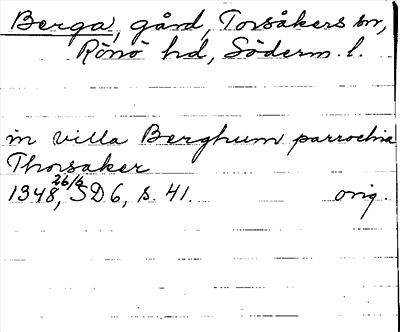 Berga, gård, Torsåkers sn,
Rönö hd, Söderm. l.
in villa Berghum parrochia
Thorsaker
1348 26/6, SD 6, s. 41. orig.